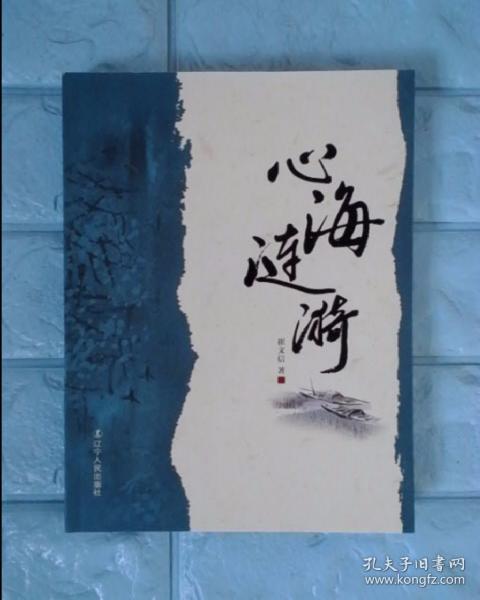 心海
涟漪
崔文信 著
辽宁人民出版社
孔夫子旧书网
www.kongfz.com